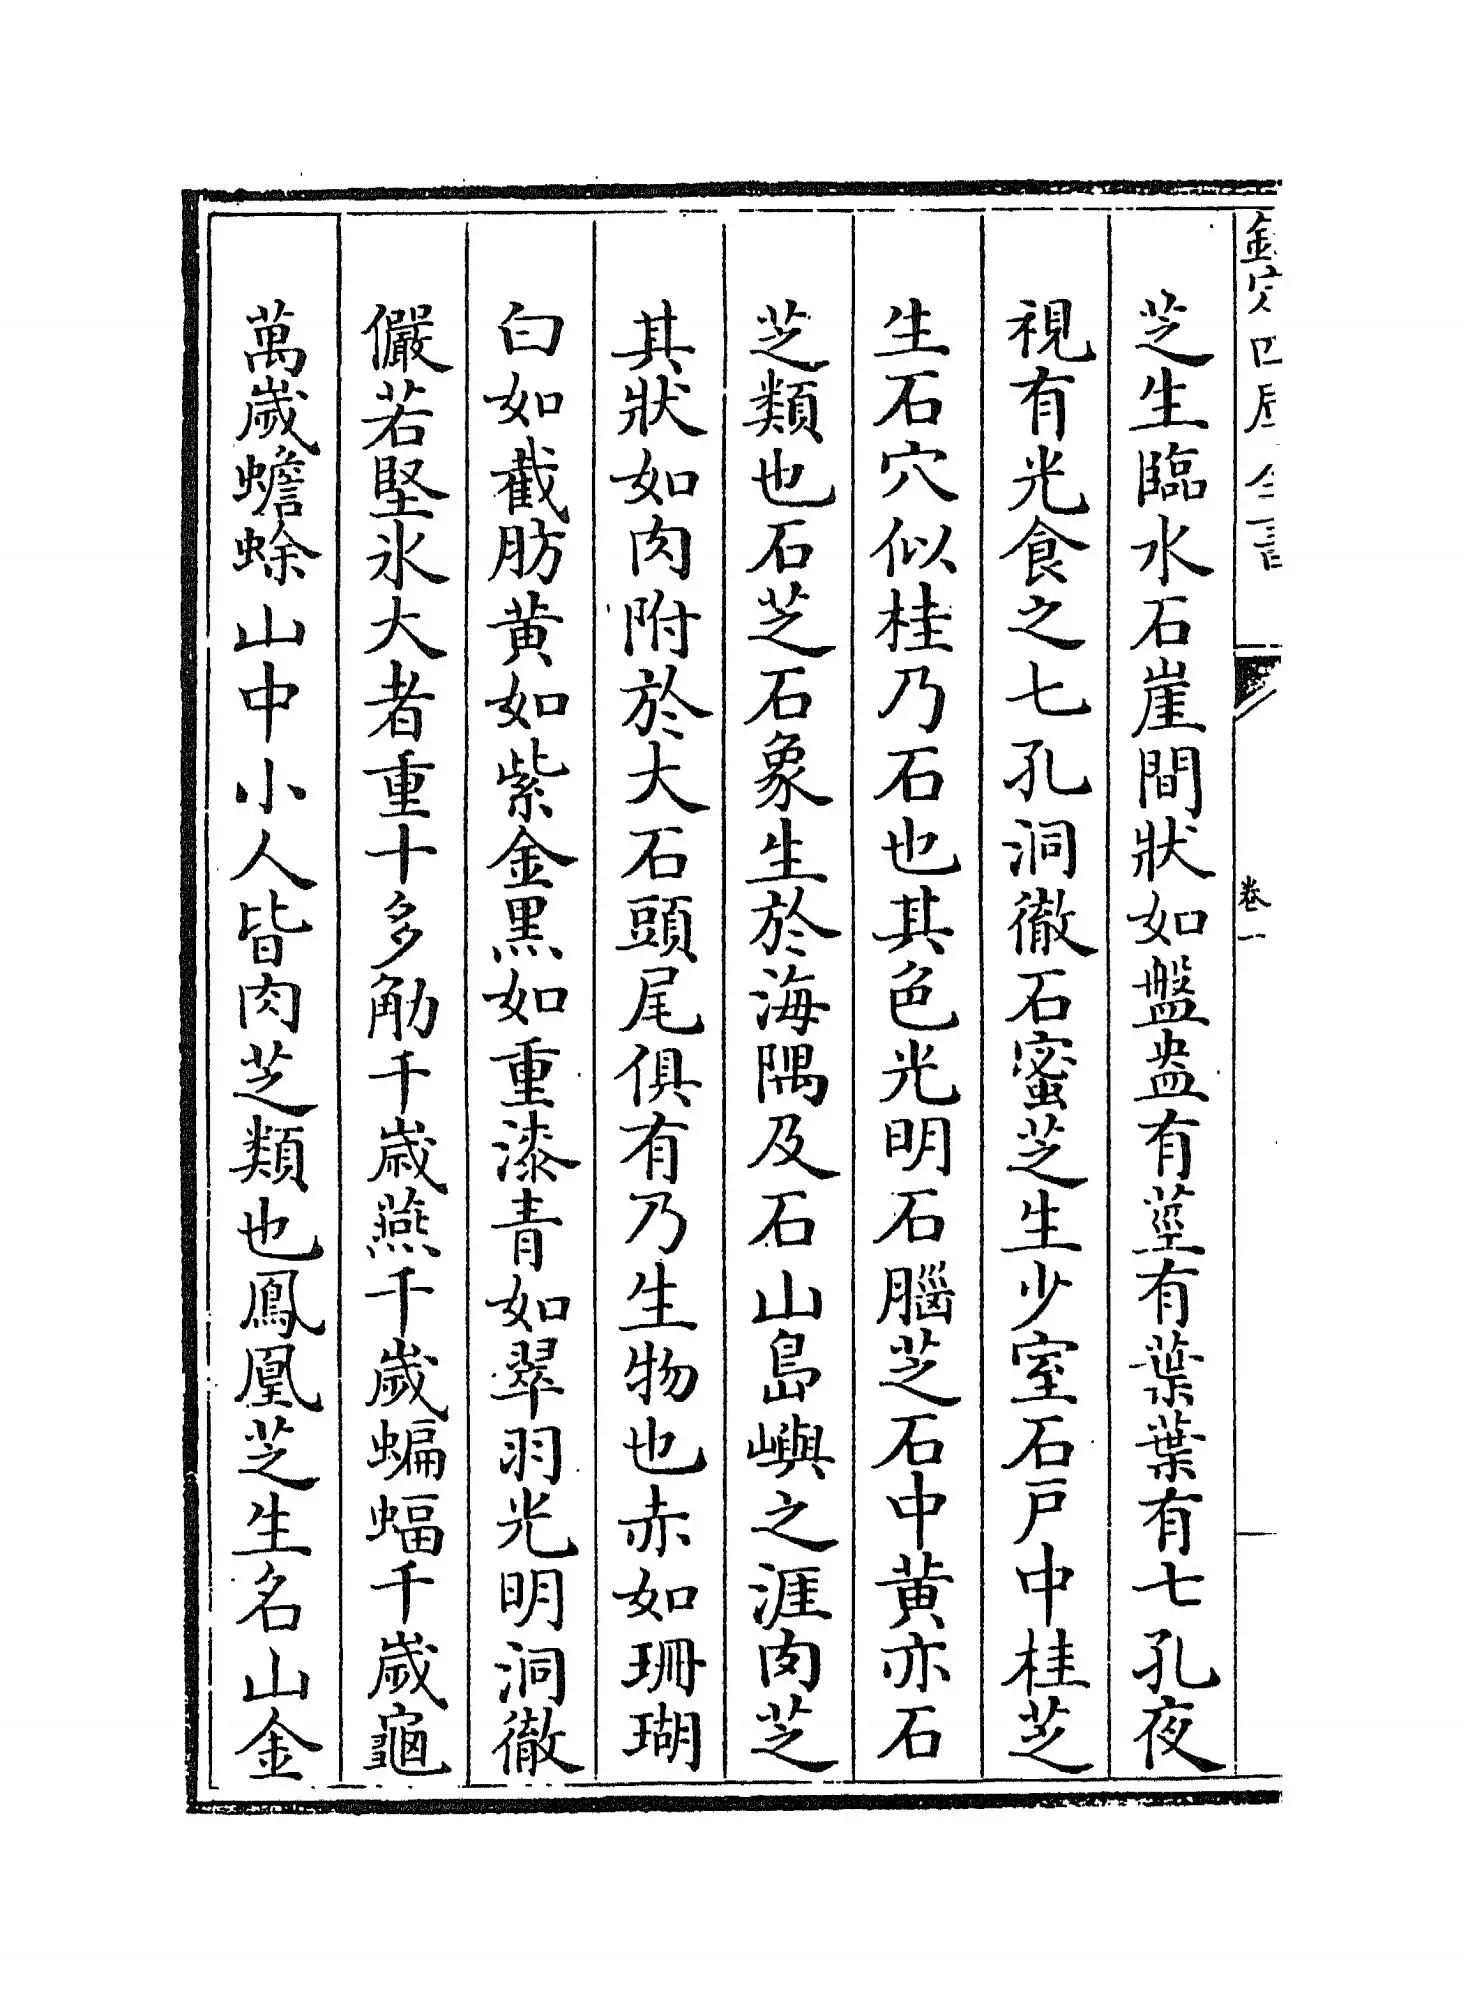 欽定四庫全書
卷一
芝生臨水石崖間狀如盤盎有莖有葉葉有七孔夜
視有光食之七孔洞徹石蜜芝生少室石戸中桂芝
生石穴似桂乃石也其色光明石腦芝石中黄亦石
芝類也石芝石象生於海隅及石山島嶼之涯肉芝
其狀如肉附於大石頭尾俱有乃生物也赤如珊瑚
白如截肪黄如紫金黑如重漆青如翠羽光明洞徹
儼若堅氷大者重十多觔千歲燕千歲蝙蝠千歲龜
萬歲蟾蜍山中小人皆肉芝類也鳳凰芝生名山金